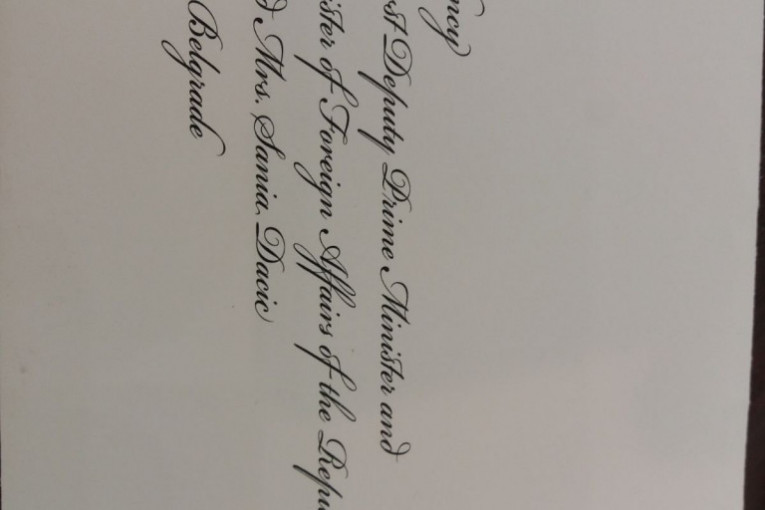 ncy
st Deputy Prime Minister and
ister of Foreign Affairs of the Repu
d Mrs. Sania Dacic
Belgrade